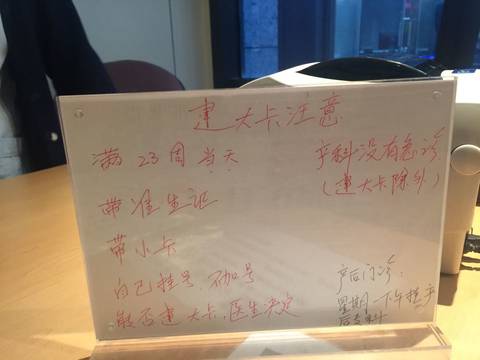 建大卡注意
满23周当天
带准生证
带小卡
自己挂号,不加号
能否建大卡,医生决定
产科没有急诊
(建大卡除外)
产后门诊:
星期一下午挂产
后专科